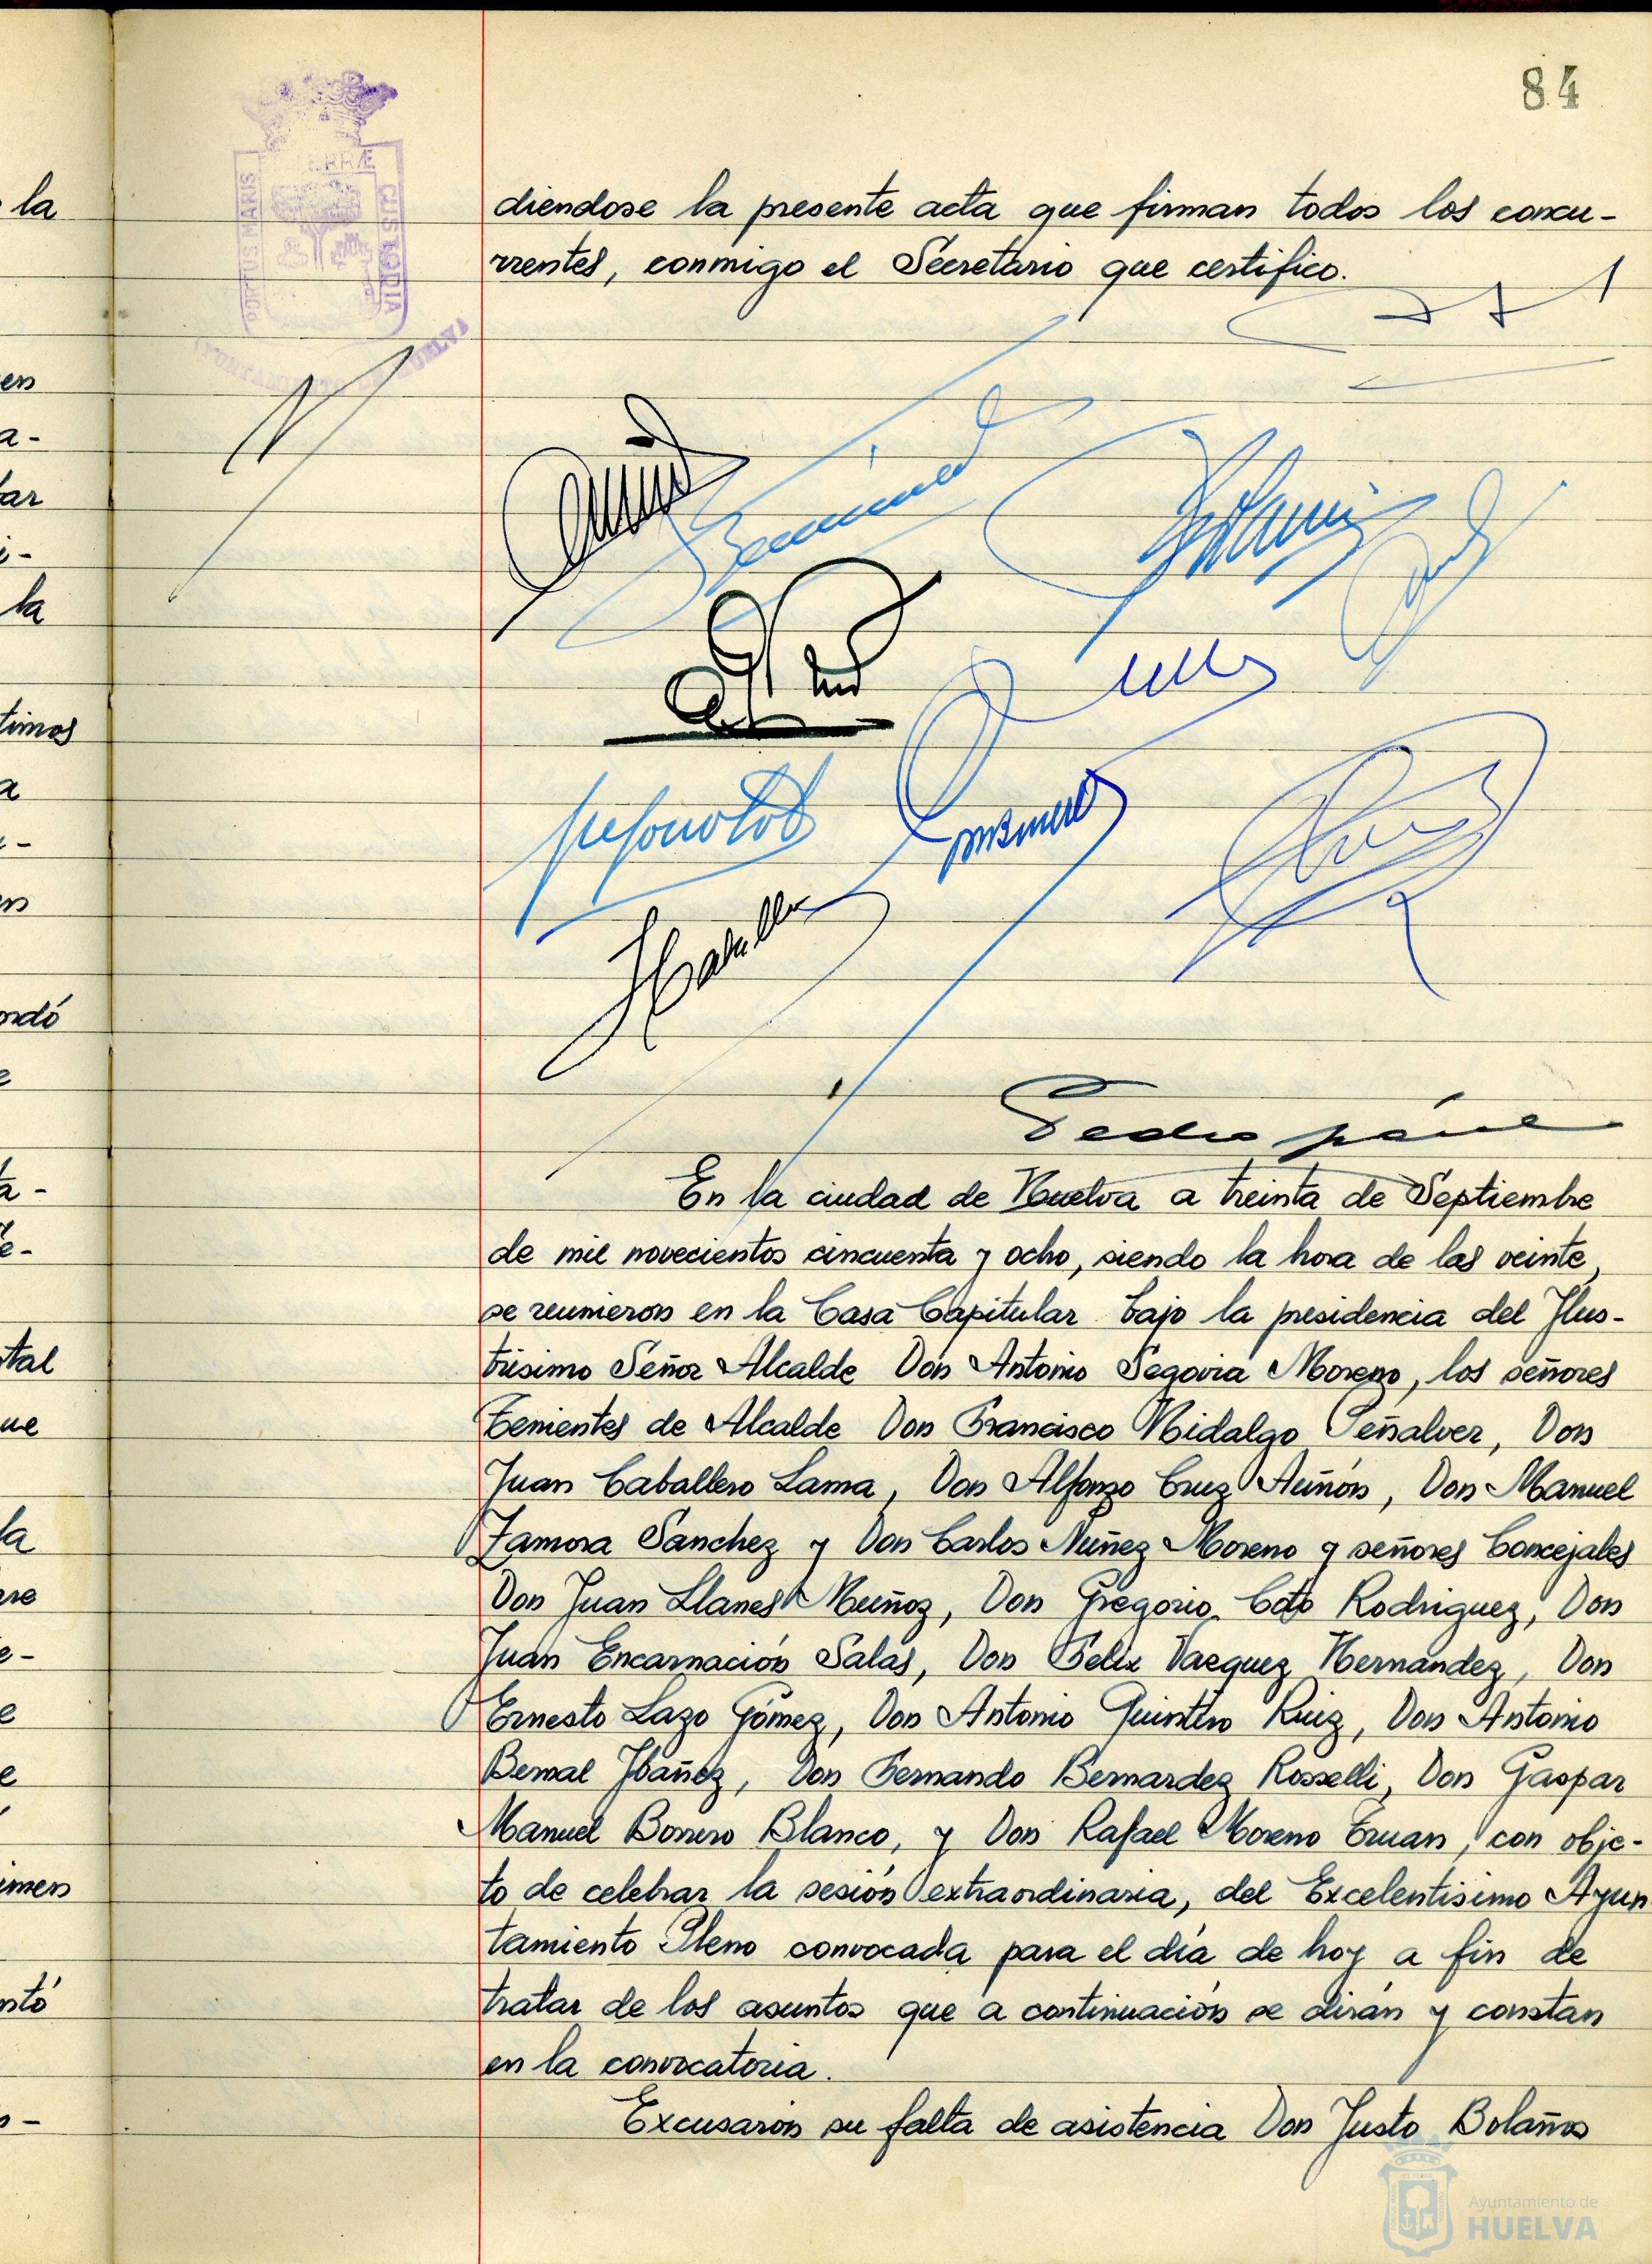 84
diendose la presente acta que firman todos los concu-
rrentes, conmigo el Secretario que certifico.
PORTUS MARIS
TERRÆ
CUSTODIA
AYUNTAMIENTO DE HUELVA
En la ciudad de Huelva a treinta de Septiembre
de mil novecientos cincuenta y ocho, siendo la hora de las veinte,
se reunieron en la Casa Capitular bajo la presidencia del Ilus-
trisimo Señor Alcalde Don Antonio Segovia Moreno, los señores
Tenientes de Alcalde Don Francisco Hidalgo Peñalver, Don
Juan Caballero Lama, Don Alfonso Cruz Auñón, Don Manuel
Zamora Sanchez y Don Carlos Nuñez Moreno y señores Concejales
Don Juan Llanes Muñoz, Don Gregorio Coto Rodriguez, Don
Juan Encarnación Salas, Don Felix Vazquez Hernandez, Don
Ernesto Lazo Gómez, Don Antonio Quintero Ruiz, Don Antonio
Bernal Ibáñez, Don Fernando Bernardez Rosselli, Don Gaspar
Manuel Borrero Blanco, y Don Rafael Moreno Eruan, con obje-
to de celebrar la sesión extraordinaria, del Excelentisimo Ayun
tamiento Pleno convocada para el día de hoy a fin de
tratar de los asuntos que a continuación se dirán y constan
en la convocatoria.
Excusaron su falta de asistencia Don Justo Bolaños
la
en
a-
ar
i-
la
timos
a
ordó
tal
ue
la
e-
e
imen
ntó
Ayuntamiento de
HUELVA